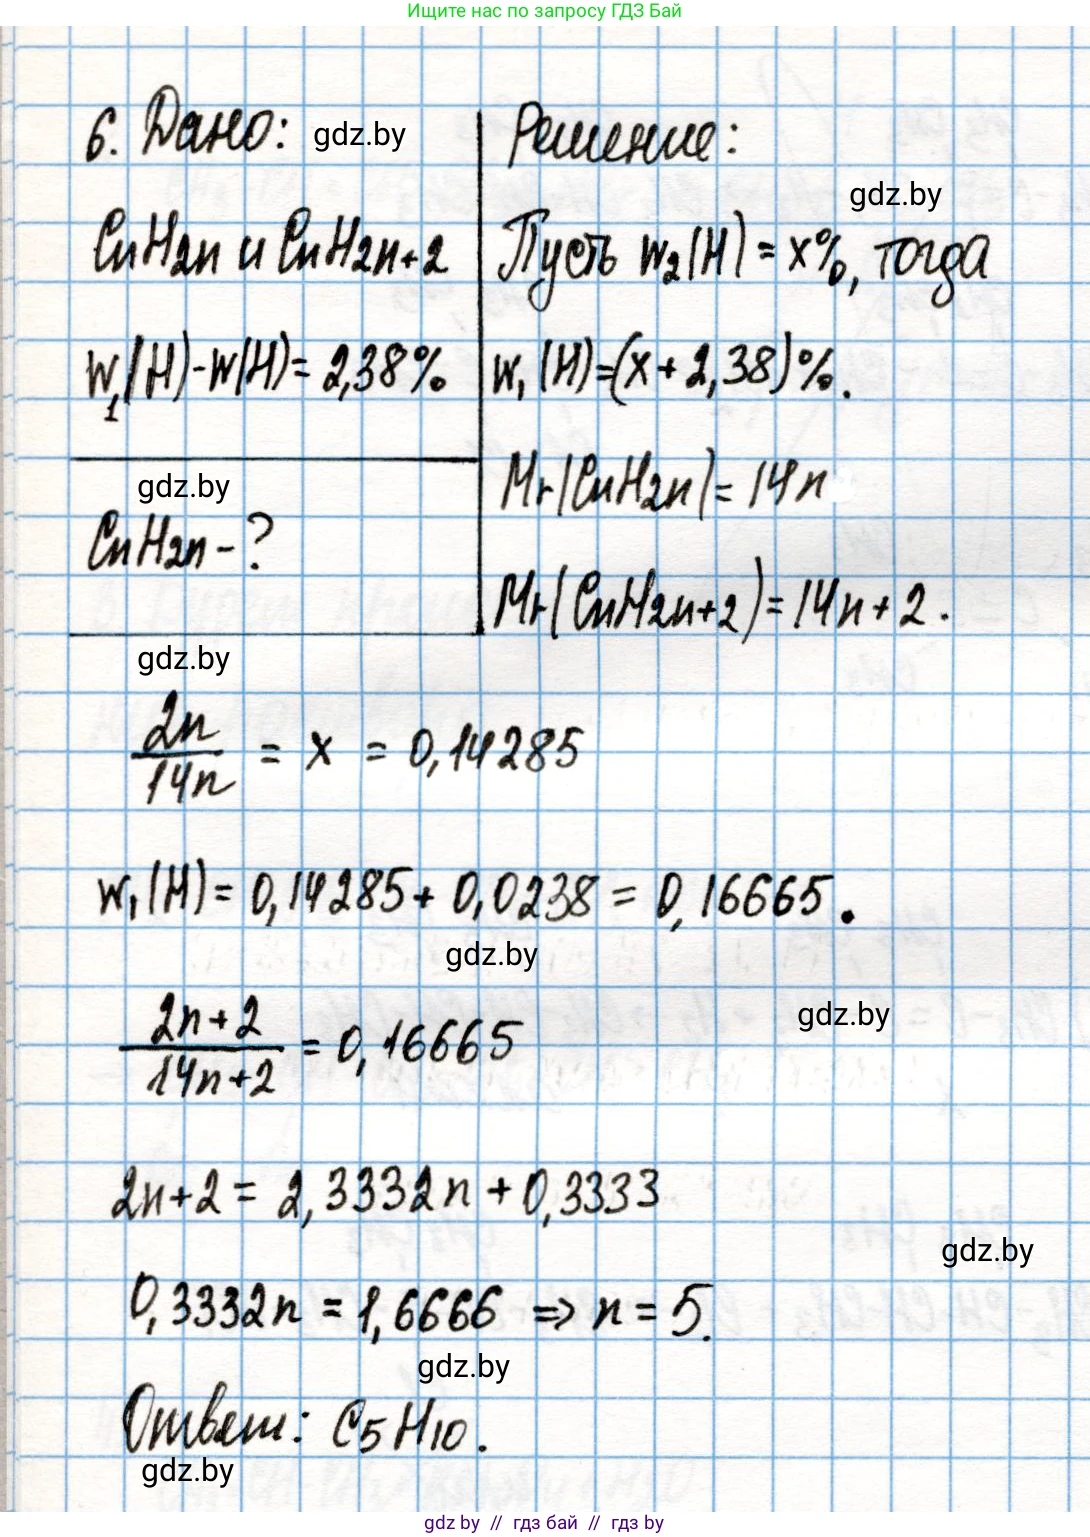 Ищите нас по запросу ГДЗ Бай
6. Дано: gdz.by
CnH2n и CnH2n+2
w1(H)-w(H)= 2,38%
gdz.by
CnH2n - ?
gdz.by
Решение:
gdz.by
Пусть w2(H) = x%, тогда
w1(H)=(x+2,38)%.
Mr(CnH2n)= 14n
Mr(CnH2n+2)=14n+2.
2n/14n = x = 0,14285
w1(H)= 0,14285+ 0,0238 = 0,16665.
gdz.by
gdz.by
2n+2/14n+2 = 0,16665
2n+2 = 2,3332n + 0,3333
gdz.by
0,3332n = 1,6666 => n = 5.
gdz.by
Ответ: C5H10.
gdz.by
gdz by // гдз бай // гдз by